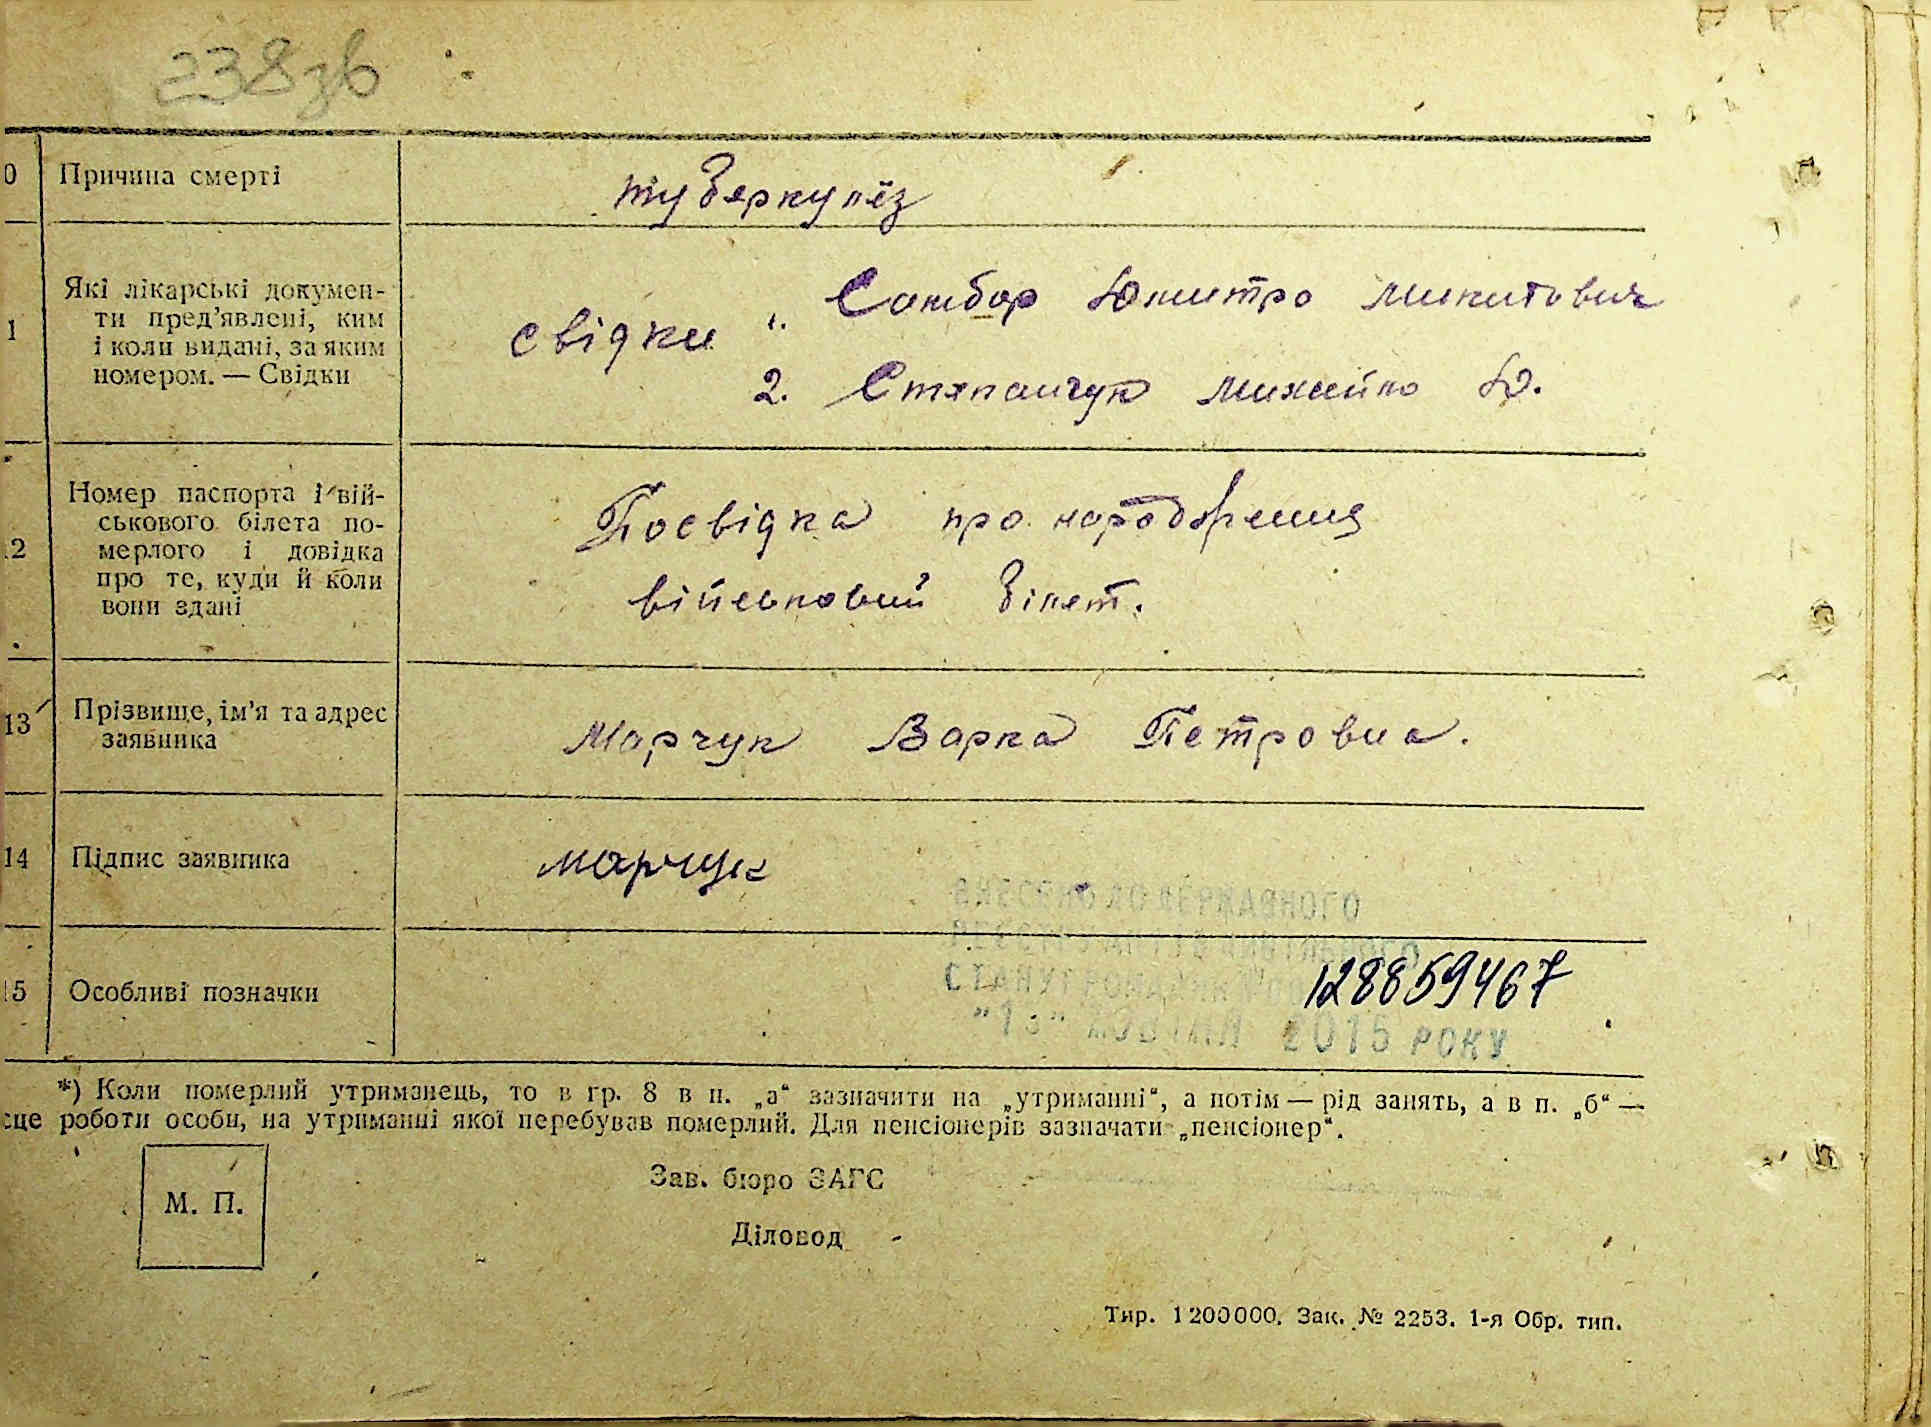 238зв
0 Причина смерті
тубяркулёз
1 Які лікарські докумен-
ти пред'явлені, ким
і коли видані, за яким
номером. — Свідки
свідки 1. Самбор Дмитро Микитович
2. Стяпанчук Михайло Д.
12 Номер паспорта і вій-
ськового білета по-
мерлого і довідка
про те, куди й коли
вони здані
Посвідка про народження
військовий білет.
13 Прізвище, ім'я та адрес
заявника
Марчук Варка Петровна.
14 Підпис заявника
марчук
15 Особливі позначки
ВНЕСЕНО ДО ДЕРЖАВНОГО
РЕЄСТРУ АКТІВ ЦИВІЛЬНОГО
СТАНУ ГРОМАДЯН 128859467
ЖОВТНЯ 2015 РОКУ
*) Коли померлий утриманець, то в гр. 8 в п. „а“ зазначити на „утриманні“, а потім — рід занять, а в п. „б“ —
сце роботи особи, на утриманні якої перебував померлий. Для пенсіонерів зазначати „пенсіонер“.
М. П.
Зав. бюро ЗАГС
Діловод
Тир. 1 200 000. Зак. № 2253. 1-я Обр. тип.